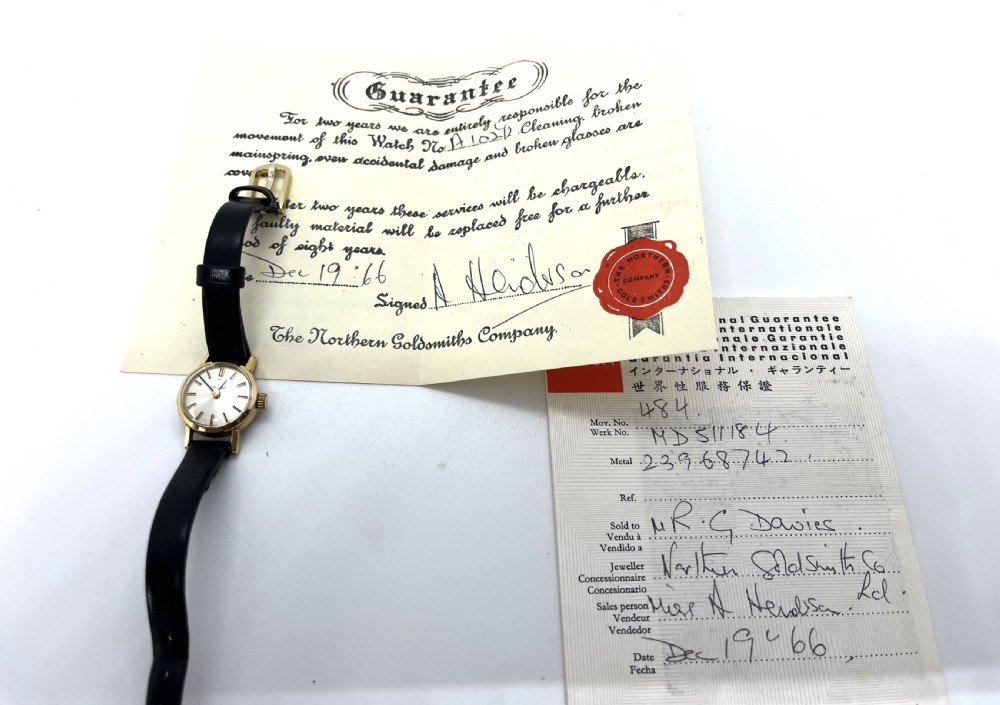 Guarantee
For two years we are entirely responsible for the
movement of this Watch No A1024/2 Cleaning, broken
mainspring, even accidental damage and broken glasses are
cov
ter two years these services will be chargeable.
faulty material will be replaced free for a further
od of eight years.
e Dec 19 : 66
Signed A Hendson
The Northern Goldsmiths Company.
THE NORTHERN
COMPANY
GOLDSMITHS
nal Guarantee
Internationale
nale Garantie
Internazionale
Garantia Internacional
インターナショナル・ギャランティー
世界性服務保證
484.
Mov. No.
Werk No. MD 511184
Metal 23968742
Ref.
Sold to MR. G Davies.
Vendu à
Vendido a
Jeweller Northern Goldsmith Co
Concessionnaire Ltd.
Concesionario
Sales person Miss A Hendson.
Vendeur
Vendedor
Date Dec 19th 66
Fecha